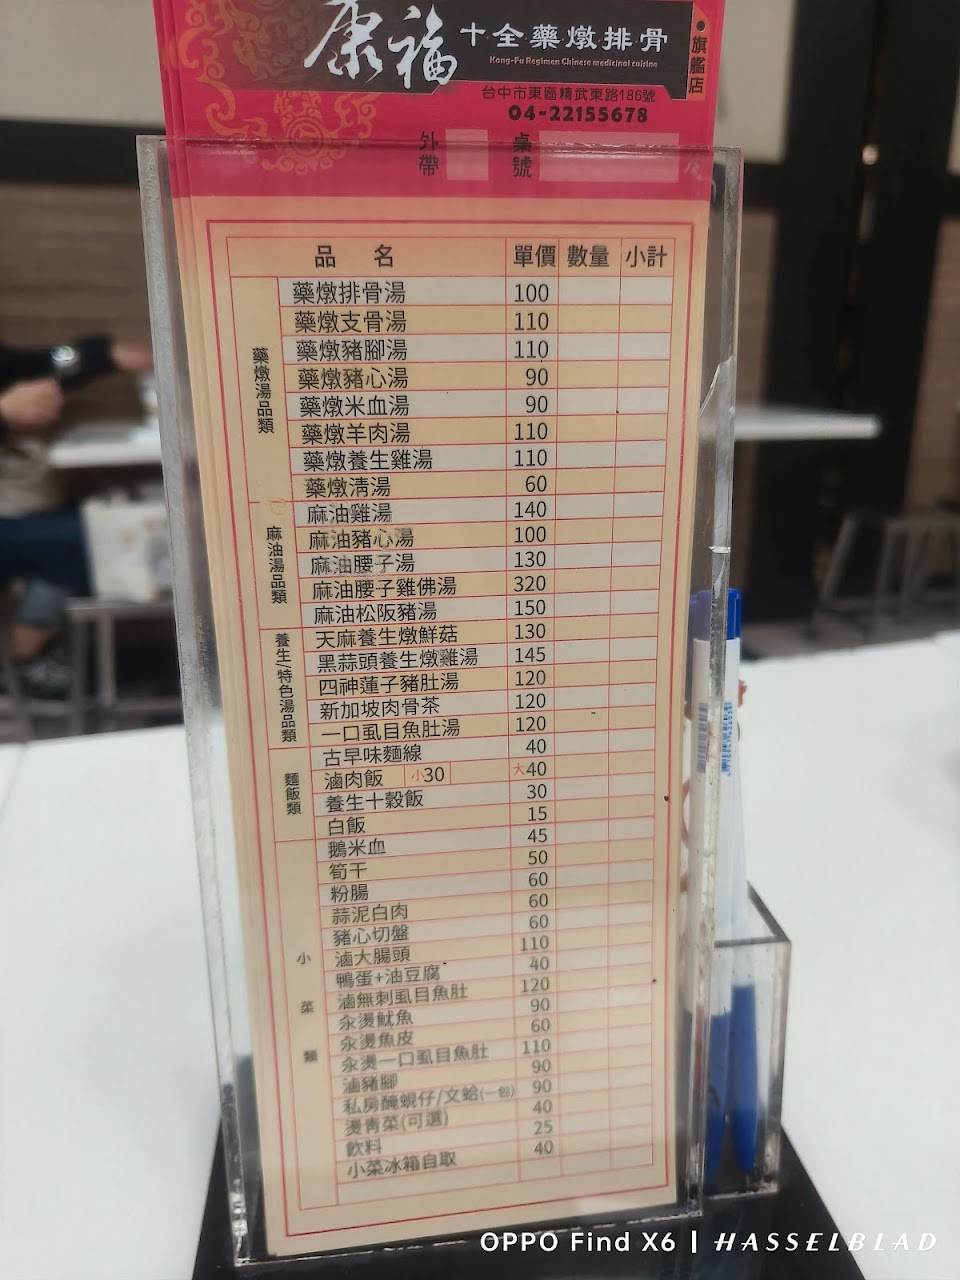 康福 十全藥燉排骨
Kang-Fu Regimen Chinese medicinal cuisine
•旗艦店
台中市東區精武東路186號
04-22155678
外帶
桌號
品 名 單價 數量 小計
藥燉湯品類
藥燉排骨湯 100
藥燉支骨湯 110
藥燉豬腳湯 110
藥燉豬心湯 90
藥燉米血湯 90
藥燉羊肉湯 110
藥燉養生雞湯 110
藥燉清湯 60
麻油湯品類
麻油雞湯 140
麻油豬心湯 100
麻油腰子湯 130
麻油腰子雞佛湯 320
麻油松阪豬湯 150
養生/特色湯品類
天麻養生燉鮮菇 130
黑蒜頭養生燉雞湯 145
四神蓮子豬肚湯 120
新加坡肉骨茶 120
一口虱目魚肚湯 120
麵飯類
古早味麵線 40
滷肉飯 小30 大40
養生十穀飯 30
白飯 15
小菜類
鵝米血 45
筍干 50
粉腸 60
蒜泥白肉 60
豬心切盤 60
滷大腸頭 110
鴨蛋+油豆腐 40
滷無刺虱目魚肚 120
汆燙魷魚 90
汆燙魚皮 60
汆燙一口虱目魚肚 110
滷豬腳 90
私房醃蜆仔/文蛤(一包) 90
燙青菜(可選) 40
飲料 25
小菜冰箱自取 40
OPPO Find X6 | HASSELBLAD